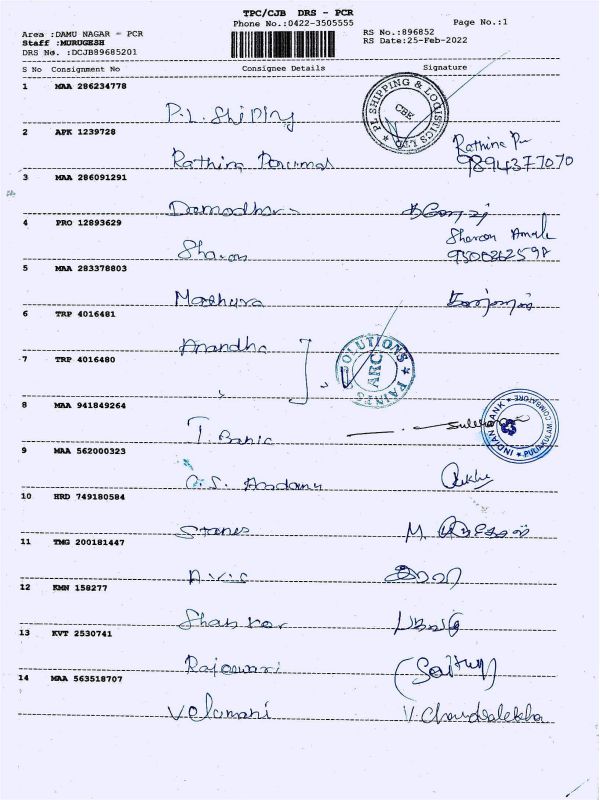 TPC/CJB DRS - PCR
Phone No.:0422-3505555
Page No.:1
Area :DAMU NAGAR - PCR
Staff :MURUGESH
DRS No. :DCJB89685201
RS No.:896852
RS Date:25-Feb-2022
S No Consignment No Consignee Details Signature
1 MAA 286234778
P.L. Shipping
PL SHIPPING & LOGISTICS LTD
CBE
2 APK 1239728
Rathina Perumal
Rathina
9894377070
3 MAA 286091291
Damodhar
4 PRO 12893629
Sharon
Sharon
5 MAA 283378803
Mathura
6 TRP 4016481
Anandha
SOLUTIONS PAINTS
ARC
7 TRP 4016480
8 MAA 941849264
I. Bank
INDIAN BANK PULIAKULAM, COIMBATORE
9 MAA 562000323
10 HRD 749180584
Stanes
M.
11 TMG 200181447
12 KMN 158277
Shankar
13 KVT 2530741
Rajeswari
14 MAA 563518707
Velumani
V. Chandralekha